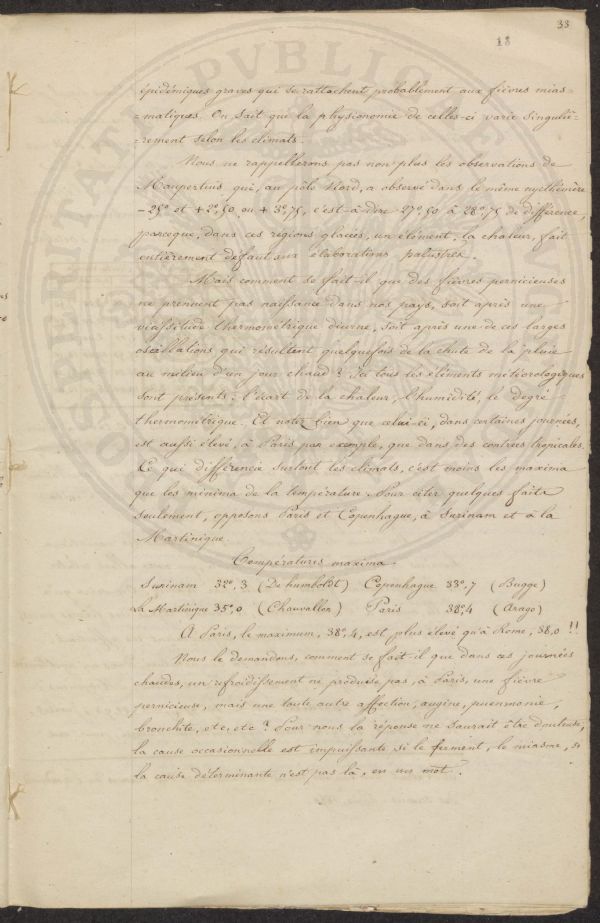 33
18
épidémiques graves qui se rattachent probablement aux fièvres mias-
-matiques. On sait que la physionomie de celles-ci varie singuliè-
-rement selon les climats.
Nous ne rappellerons pas non plus les observations de
Maupertuis qui, au pôle Nord, a observé dans le même nycthémère
- 25° et + 2°,50 ou + 3°,75, c'est-à-dire 27°,50 à 28°,75 de différence,
parceque, dans ces régions glacées, un élément, la chaleur, fait
entièrement défaut aux élaborations palustres.
Mais comment se fait-il que des fièvres pernicieuses
ne prennent pas naissance dans nos pays, soit après une
vicissitude thermométrique diurne, soit après une de ces larges
oscillations qui résultent quelquefois de la chute de la pluie
au milieu d'un jour chaud ? Ici tous les éléments météorologiques
sont présents : l'écart de la chaleur, l'humidité, le degré
thermométrique. Et notez bien que celui-ci, dans certaines journées,
est aussi élevé, à Paris par exemple, que dans des contrées tropicales.
Ce qui différencie surtout les climats, c'est moins les maxima
que les minima de la température. Pour citer quelques faits
seulement, opposons Paris et Copenhague, à Surinam et à la
Martinique.
Températures maxima.
Surinam 32°,3 (De humboldt) Copenhague 33°,7 (Bugge)
La Martinique 35°,0 (Chanvallon) Paris 38°,4 (Arago)
A Paris, le maximum, 38°,4, est plus élevé qu'à Rome, 38,0 !!
Nous le demandons, comment se fait-il que dans ces journées
chaudes, un refroidissement ne produise pas, à Paris, une fièvre
pernicieuse, mais une toute autre affection, angine, pneumonie,
bronchite, etc, etc ? Pour nous la réponse ne saurait être douteuse,
la cause occasionnelle est impuissante si le ferment, le miasme, si
la cause déterminante n'est pas là, en un mot.